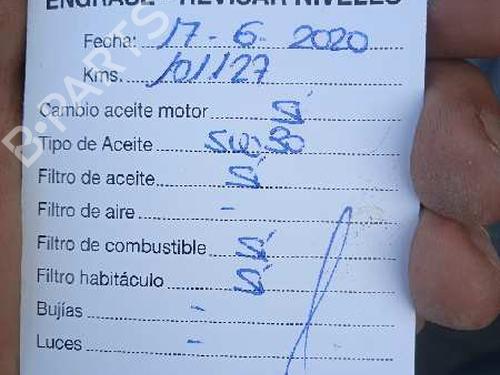 ENGRASE - REVISAR NIVELES
Fecha: 17-6-2020
Kms. 101127
Cambio aceite motor Sí
Tipo de Aceite 5W30
Filtro de aceite Sí
Filtro de aire -
Filtro de combustible Sí
Filtro habitáculo Sí
Bujías -
Luces -
B-PARTS